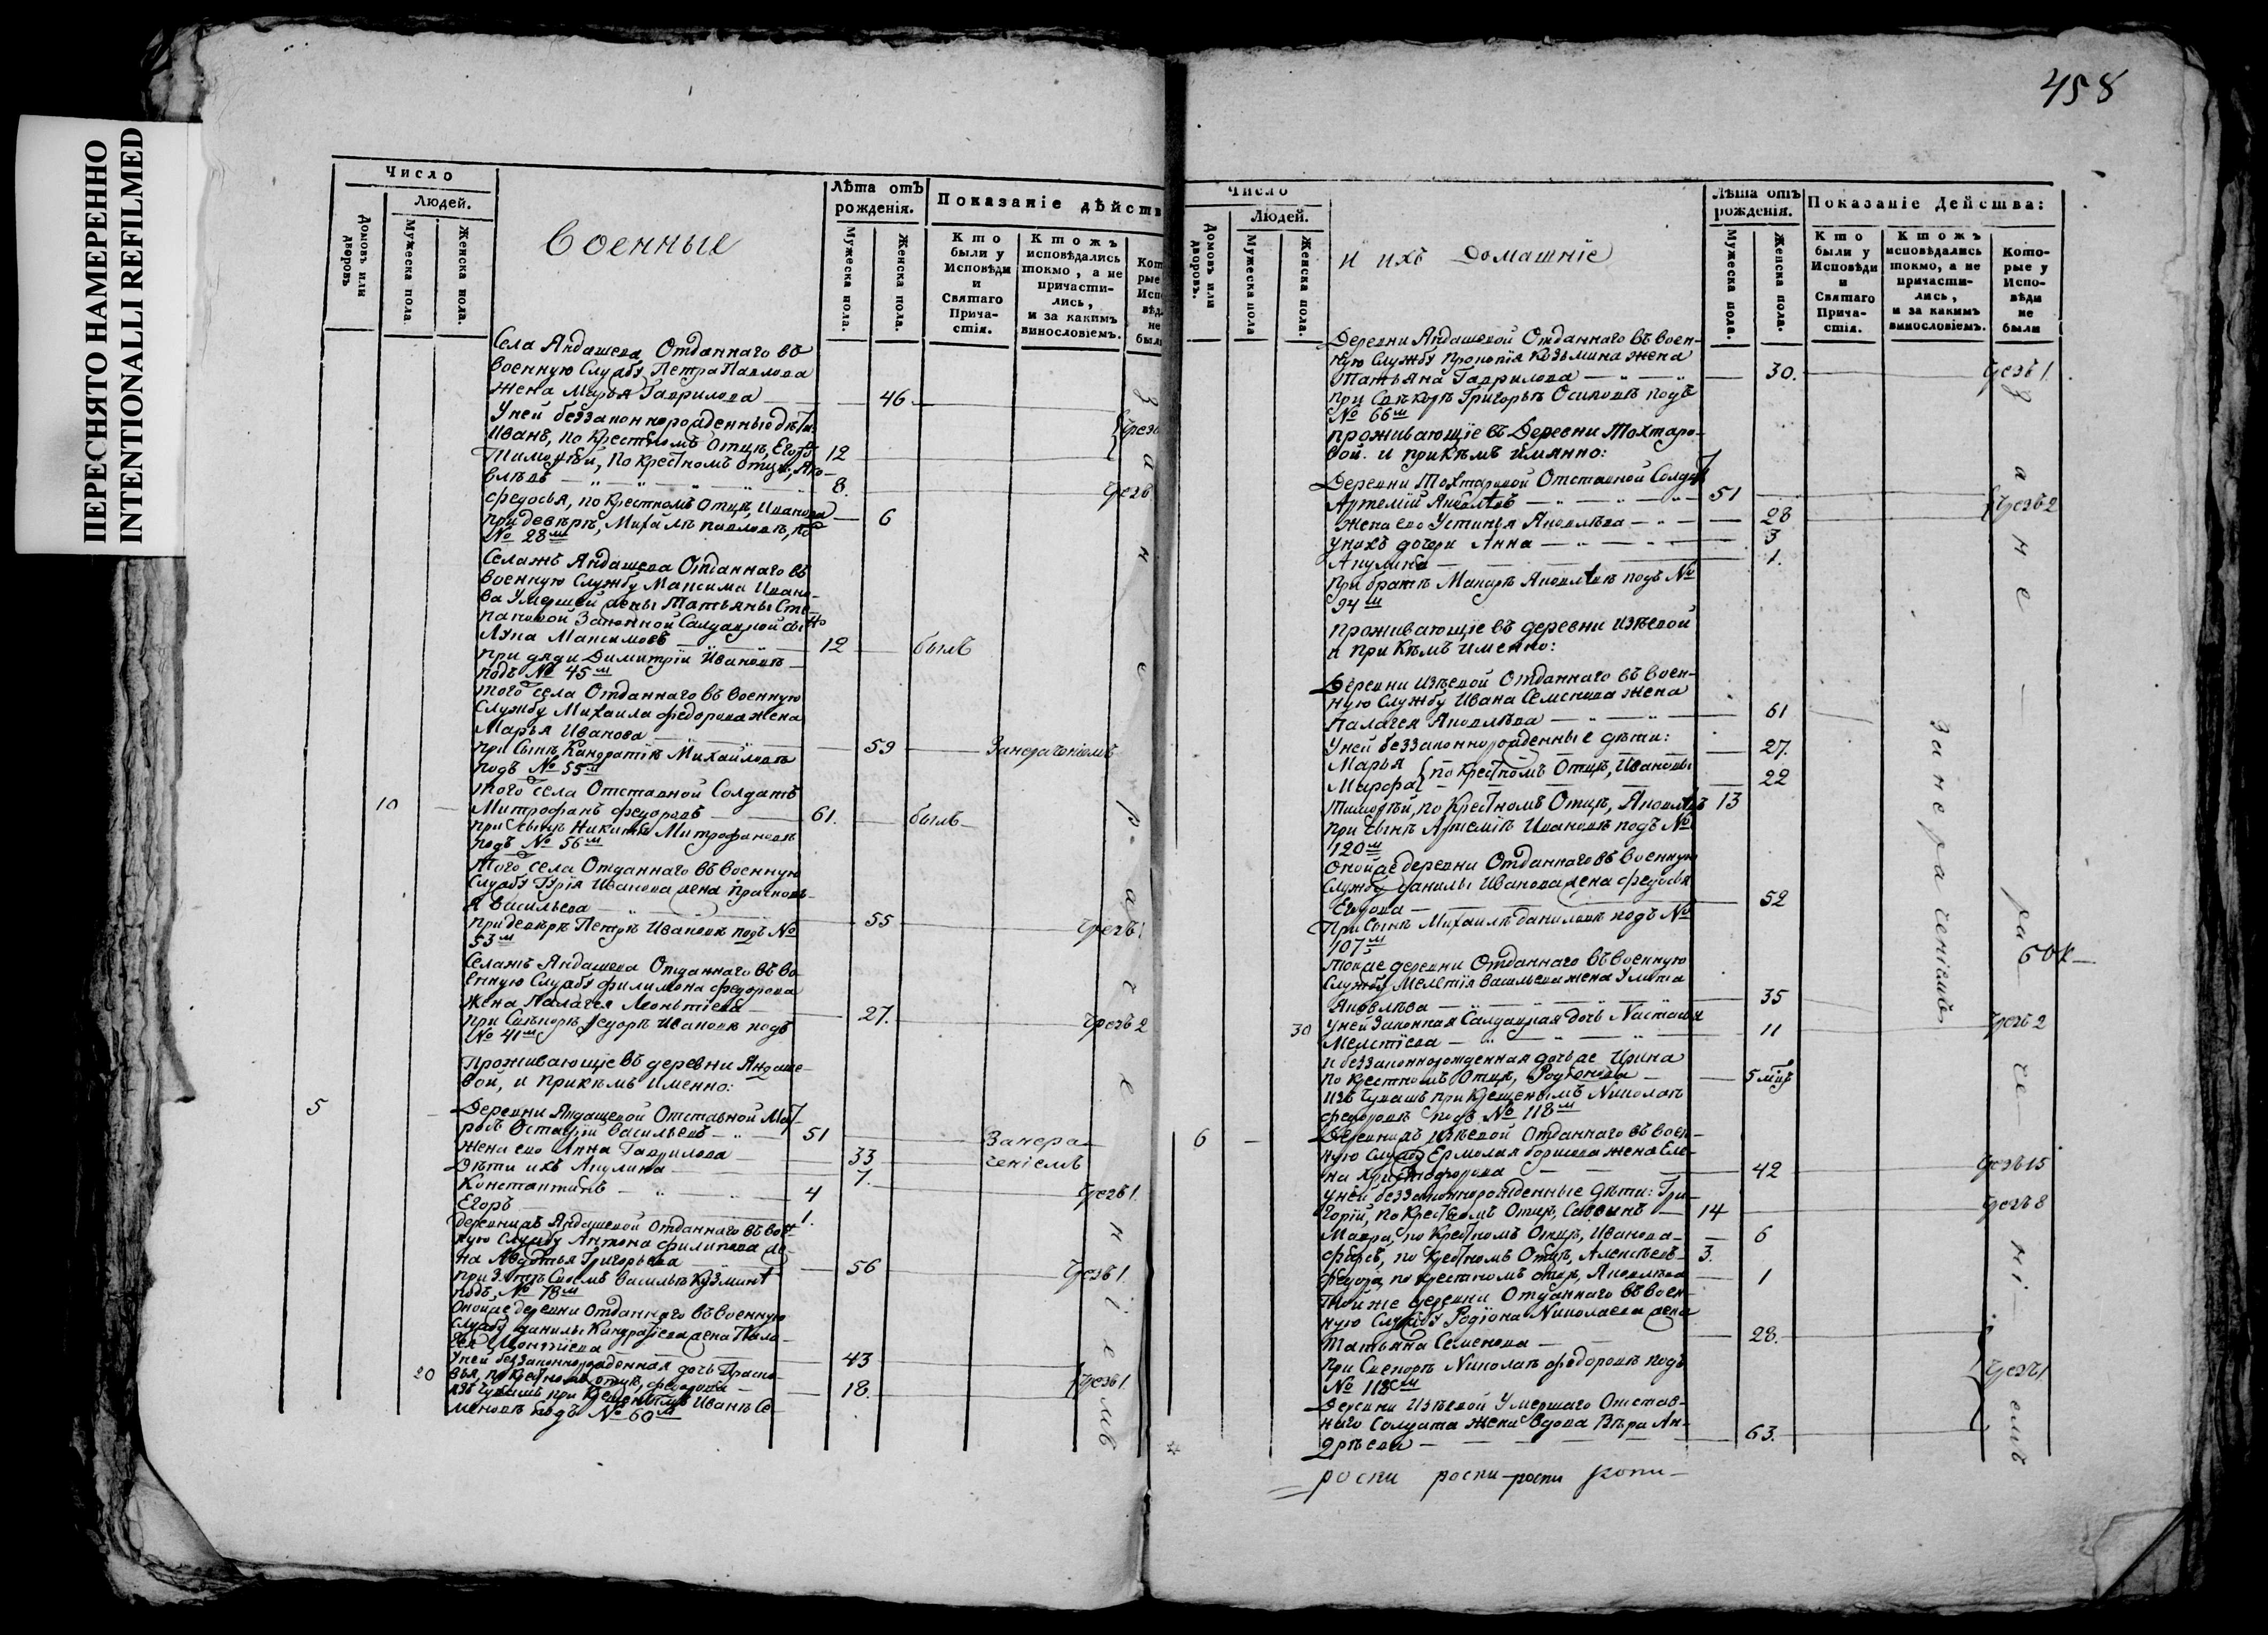 458
ПЕРЕСНЯТО НАМЕРЕННО
INTENTIONALLI REFILMED
Число
Людей.
Домовъ или дворовъ
Мужеска пола.
Женска пола.
Военные
Лѣта отъ рожденія.
Мужеска пола.
Женска пола.
Показаніе дѣйств
Кто были у Исповѣди и Святаго Прича-стія.
Ктожъ исповѣдались токмо, а не причасти-лись, и за какимъ винословіемъ.
Села Яндашева Отданнаго въ
военную Службу Петра Павлова
жена Марья Гаврилова — 46
Уней беззаконнорожденные дѣти
Иванъ, по Крестномъ Отцѣ, Егоръ 12
Тимоѳей, по крестномъ отцѣ, Яко-
влевъ — 8.
Федосья, по Крестномъ Отцѣ, Иванова — 6
при деверѣ, Михайлѣ Павловѣ, по
№ 28м
Селажъ Яндашева Отданнаго въ
военную Службу Максима Ивано-
ва Умершей жены Татьяны Сте-
пановой Законной Салдацкой сынъ
Лука Максимовъ — 12 — былъ
при дяди Димитріи Ивановѣ
подъ № 45м
того села Отданнаго въ военную
Службу Михаила Федорова жена
Марья Иванова — 59 — Занераченіемъ
при Сынѣ Кандратіѣ Михайловѣ
подъ № 55м
того села Отставной Солдатъ
10 Митрофанъ Федоровъ — 61. — былъ
при Сынѣ Никитѣ Митрофановѣ
подъ № 56м
Того села Отданнаго въ военную
Службу Гурія Иванова жена Прасковь-
я Васильева — 55 — Чрезъ 1
при деверѣ Петрѣ Ивановѣ подъ №
53м
Селажъ Яндашева Отданнаго въ во-
енную Службу Филимона Федорова
жена Палагея Леонтіева — 27. — Чрезъ 2
при Свекорѣ Федорѣ Ивановѣ подъ
№ 41м
Проживающіе въ деревни Яндаше-
вой, и прикѣмъ именно:
5 Деревни Яндашевой Отставной Мат-
росъ Остафій Васильевъ — 51 — Занера-
жена ево Анна Гаврилова — 33 — ченіемъ
Дѣти ихъ Акулина — 7.
Константинъ — 4 — Чрезъ 1.
Егоръ — 1.
деревнижъ Яндашевой Отданнаго въ воен-
ную Службу Антона Филипова же-
на Авдотья Григорьева — 56 — Чрезъ 1
при Зятѣ Своемъ Васильѣ Кузмин
подъ, № 78м
Оной же деревни Отданнаго въ военную
Службу Данилы Кандратіева жена Пела-
гея Леонтіева — 43
Уней беззаконнорожденная дочь Праско-
20 вья, по Крестномъ отцѣ, Федорова — 18. — Чрезъ 1
изъ Чувашъ при Крещеномъ Иванѣ Се-
меновѣ подъ № 60м
За нераченіемъ
Число
Людей.
Домовъ или дворовъ.
Мужеска пола
Женска пола.
и ихъ Домашніе
Лѣта отъ рожденія.
Мужеска пола.
Женска пола.
Показаніе Дейсшва:
Кто были у Исповѣди и Святаго Прича-стія.
Ктожъ исповѣдались токмо, а не причасти-лись, и за какимъ винословіемъ.
Кото-рые у Испо-вѣди не были
Деревни Яндашевой Отданнаго въ воен-
ную Службу Прокопія Козьмина жена
Татьяна Гаврилова — 30. — Чрезъ 1.
при Свекорѣ Григорьѣ Осиповѣ подъ
№ 66м
проживающіе въ Деревни Тохтаро-
вой. и прикѣмъ имянно:
Деревни Тохтаровой Отставной Солдатъ
Артемій Яковлевъ — 51
жена ево Устинья Яковлева — 28 — Чрезъ 2
Унихъ дочери Анна — 3
Акулина — 1.
При братѣ Макарѣ Яковлевѣ подъ №
94м
проживающіе въ деревни Изѣевой
и при Кѣмъ именно:
Деревни Изѣевой Отданнаго въ воен-
ную Службу Ивана Семенова жена
Палагея Яковлева — 61
Уней беззаконнорожденные дѣти:
Марья — 27.
по крестномъ Отцѣ, Ивановы
Марфа — 22
Тимоѳей, по Крестномъ Отцѣ, Яковлевъ 13
при Сынѣ Артеміѣ Ивановѣ подъ №
120м
Оной же деревни Отданнаго въ военную
Службу Данилы Иванова жена Федосья
Егорова — 52
При Сынѣ Михайлѣ Даниловѣ подъ №
107м
Тойже деревни Отданнаго въ военную
Службу Мелетія Васильева жена Улита
Яковлева — 35
30 Уней Законная Салдацкая дочь Настасья
Мелетіева — 11 — Чрезъ 2
и беззаконнорожденная дочь же Ирина
по крестномъ Отцѣ, Родионова — 5 мцъ
изъ Чувашъ при Крещеномъ Николаѣ
Федоровѣ подъ № 118м
6 Деревнижъ Изѣевой Отданнаго въ воен-
ную Службу Ермолая Борисова жена Еле-
на Христофорова — 42 — Чрезъ 15
Уней беззаконнорожденные дѣти: Гри-
горій, по Крестномъ Отцѣ, Саввинъ — 14 — Чрезъ 8
Мавра, по Крестномъ Отцѣ, Иванова — 6
по Крестномъ Отцѣ, Алексѣевъ 3.
Федора, по крестномъ отцѣ, Яковлева — 1
Тойже деревни Отданнаго въ воен-
ную Службу Родіона Николаева жена
Татьяна Семенова — 28.
при Свекорѣ Николаѣ Федоровѣ подъ — Чрезъ 1
№ 118м
Деревни Изѣевой Умершаго Отстав-
наго Солдата жена вдова Вѣра Ан-
дрѣева — 63.
Занераченіемъ
За не раченіемъ
роспи роспи роспи